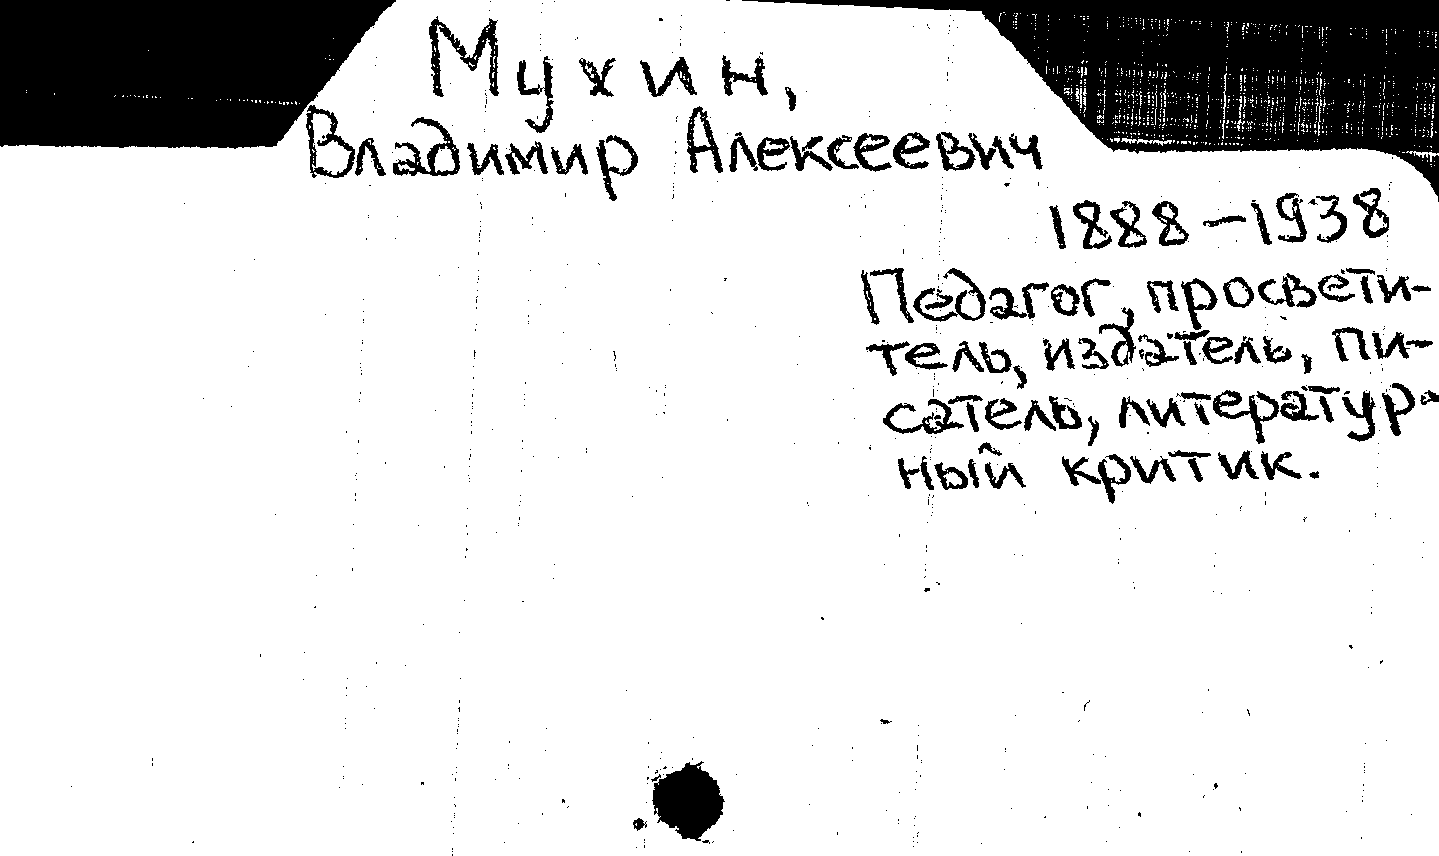 Мухин,
Владимир Алексеевич
1888-1938
Педагог, просвети-
тель, издатель, пи-
сатель, литератур-
ный критик.